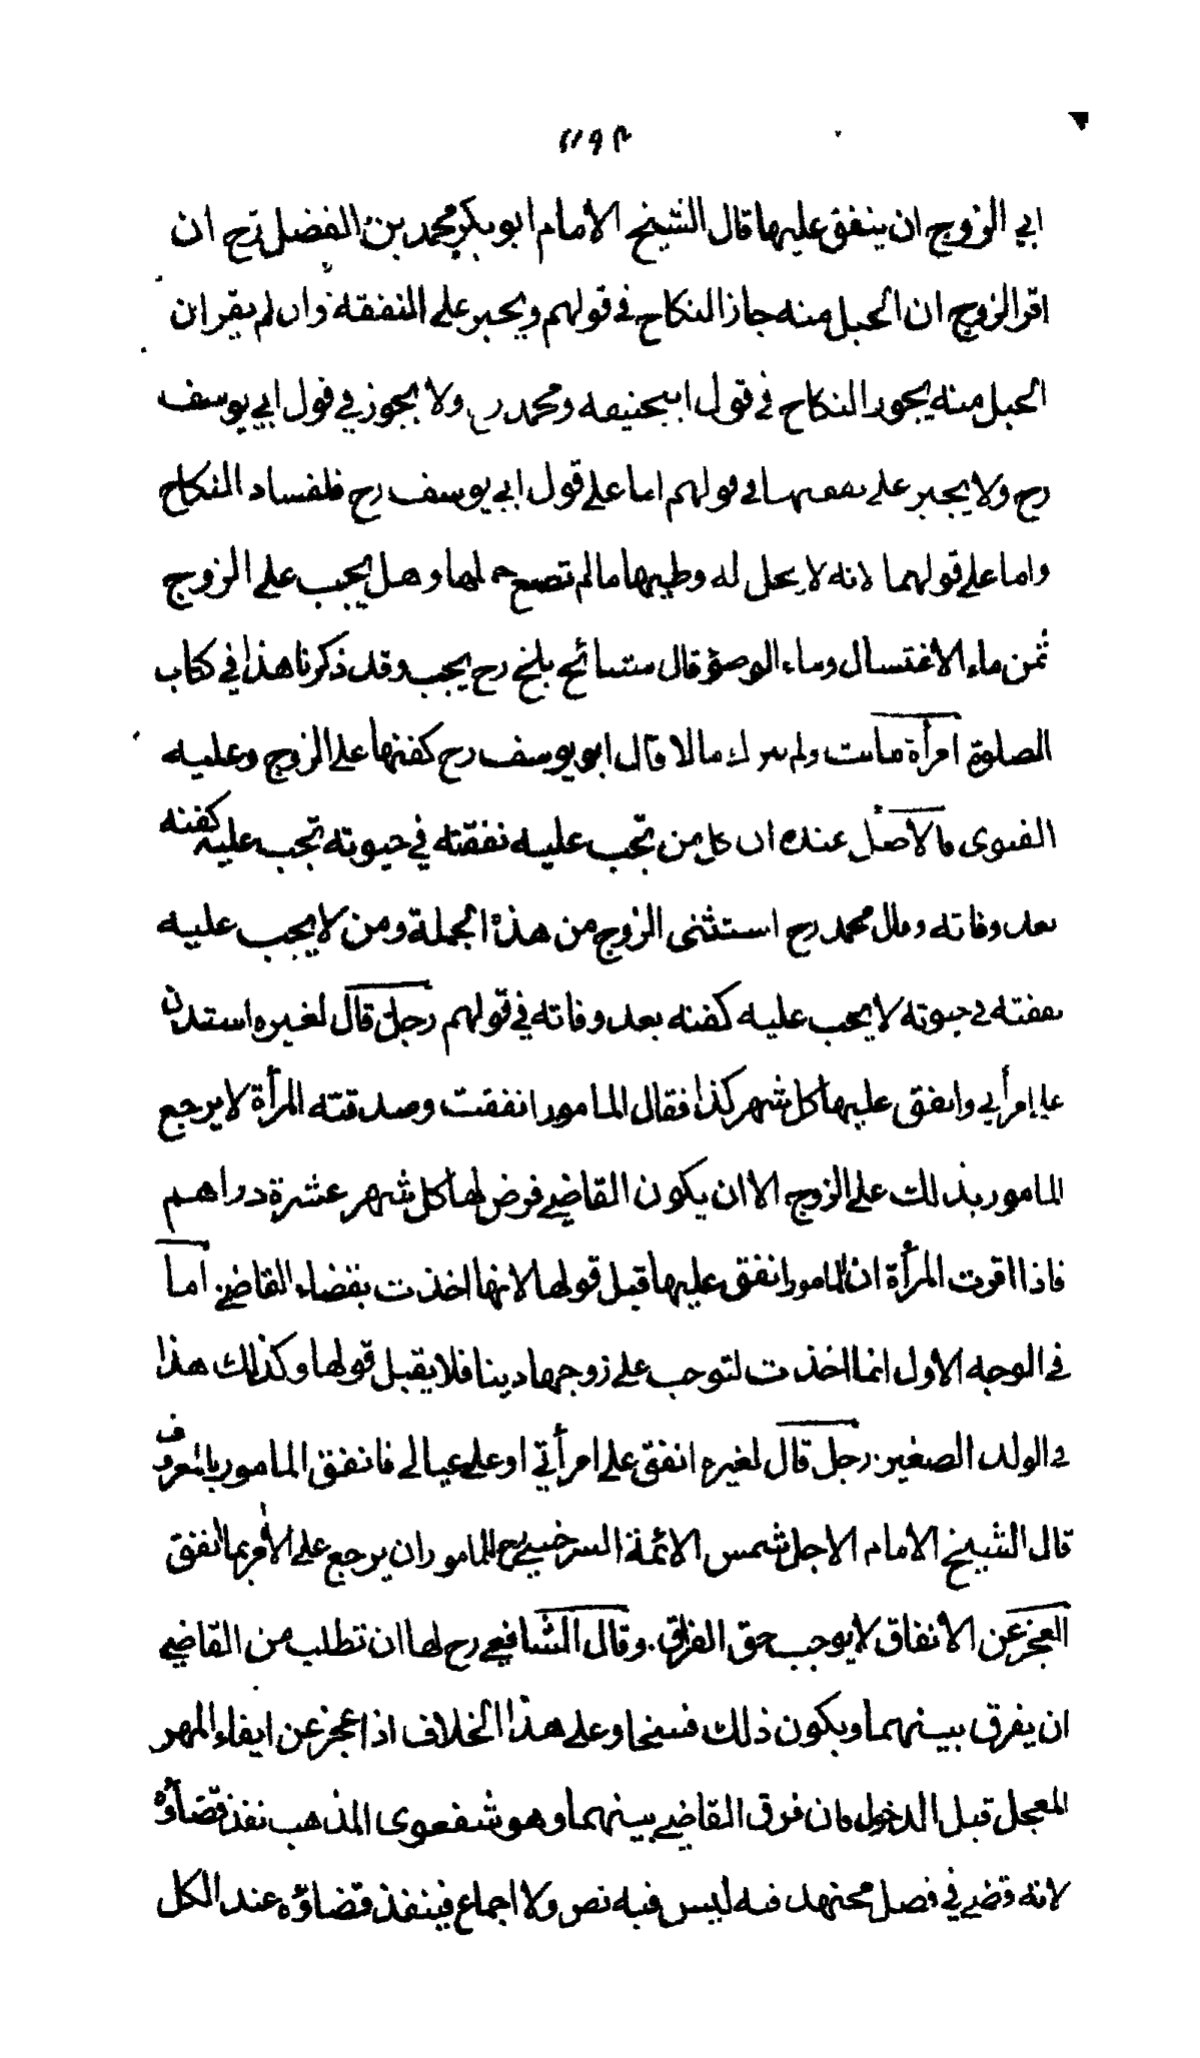 ابي الزوج ان ينفق عليها قال الشيخ الامام ابو بكر محمد بن الفضل رح ان
اقر الزوج ان الحبل منه جاز النكاح في قولهم ويجبر على النفقة وان لم يقر ان
الحبل منه يجوز النكاح في قول ابيحنيفه ومحمد رح ولا يجوز في قول ابي يوسف
رح ولا يجبر على نفقتها في قولهم اما على قول ابي يوسف رح فلفساد النكاح
واما على قولهما لانه لا يحل له وطيها ما لم تضع حملها وهل يجب على الزوج
ثمن ماء الاغتسال وماء الوضوء قال مشائخ بلخ رح يجب وقد ذكرنا هذا في كتاب
الصلوة امرأة ماتت ولم تترك مالا قال ابو يوسف رح كفنها على الزوج وعليه
الفتوى والاصل عنده ان كل من تجب عليه نفقته في حيوته تجب عليه كفنه
بعد وفاته وقال محمد رح استثنى الزوج من هذه الجملة ومن لا يجب عليه
نفقته في حيوته لا يجب عليه كفنه بعد وفاته في قولهم رجل قال لغيره استدن
على امرأتي وانفق عليها كل شهر كذا فقال المامور انفقت وصدقته المرأة لا يرجع
المامور بذلك على الزوج الا ان يكون القاضي فرض لها كل شهر عشرة دراهم
فاذا اقرت المرأة ان المامور انفق عليها قبل قولها لانها اخذت بقضاء القاضي اما
في الوجه الاول انما اخذت لتوجب على زوجها دينا فلا يقبل قولها وكذلك هذا
في الولد الصغير رجل قال لغيره انفق على امرأتي او على عيالي فانفق المامور بالمعروف
قال الشيخ الامام الاجل شمس الائمة السرخسي رح للمامور ان يرجع على الآمر بما انفق
العجز عن الانفاق لا يوجب حق الفراق وقال الشافعي رح لها ان تطلب من القاضي
ان يفرق بينهما ويكون ذلك فسخا وعلى هذا الخلاف اذا عجز عن ايفاء المهر
المعجل قبل الدخول فان فرق القاضي بينهما وهو شفعوى المذهب نفذ قضاؤه
لانه قضى في فصل مجتهد فيه ليس فيه نص ولا اجماع فينفذ قضاؤه عند الكل